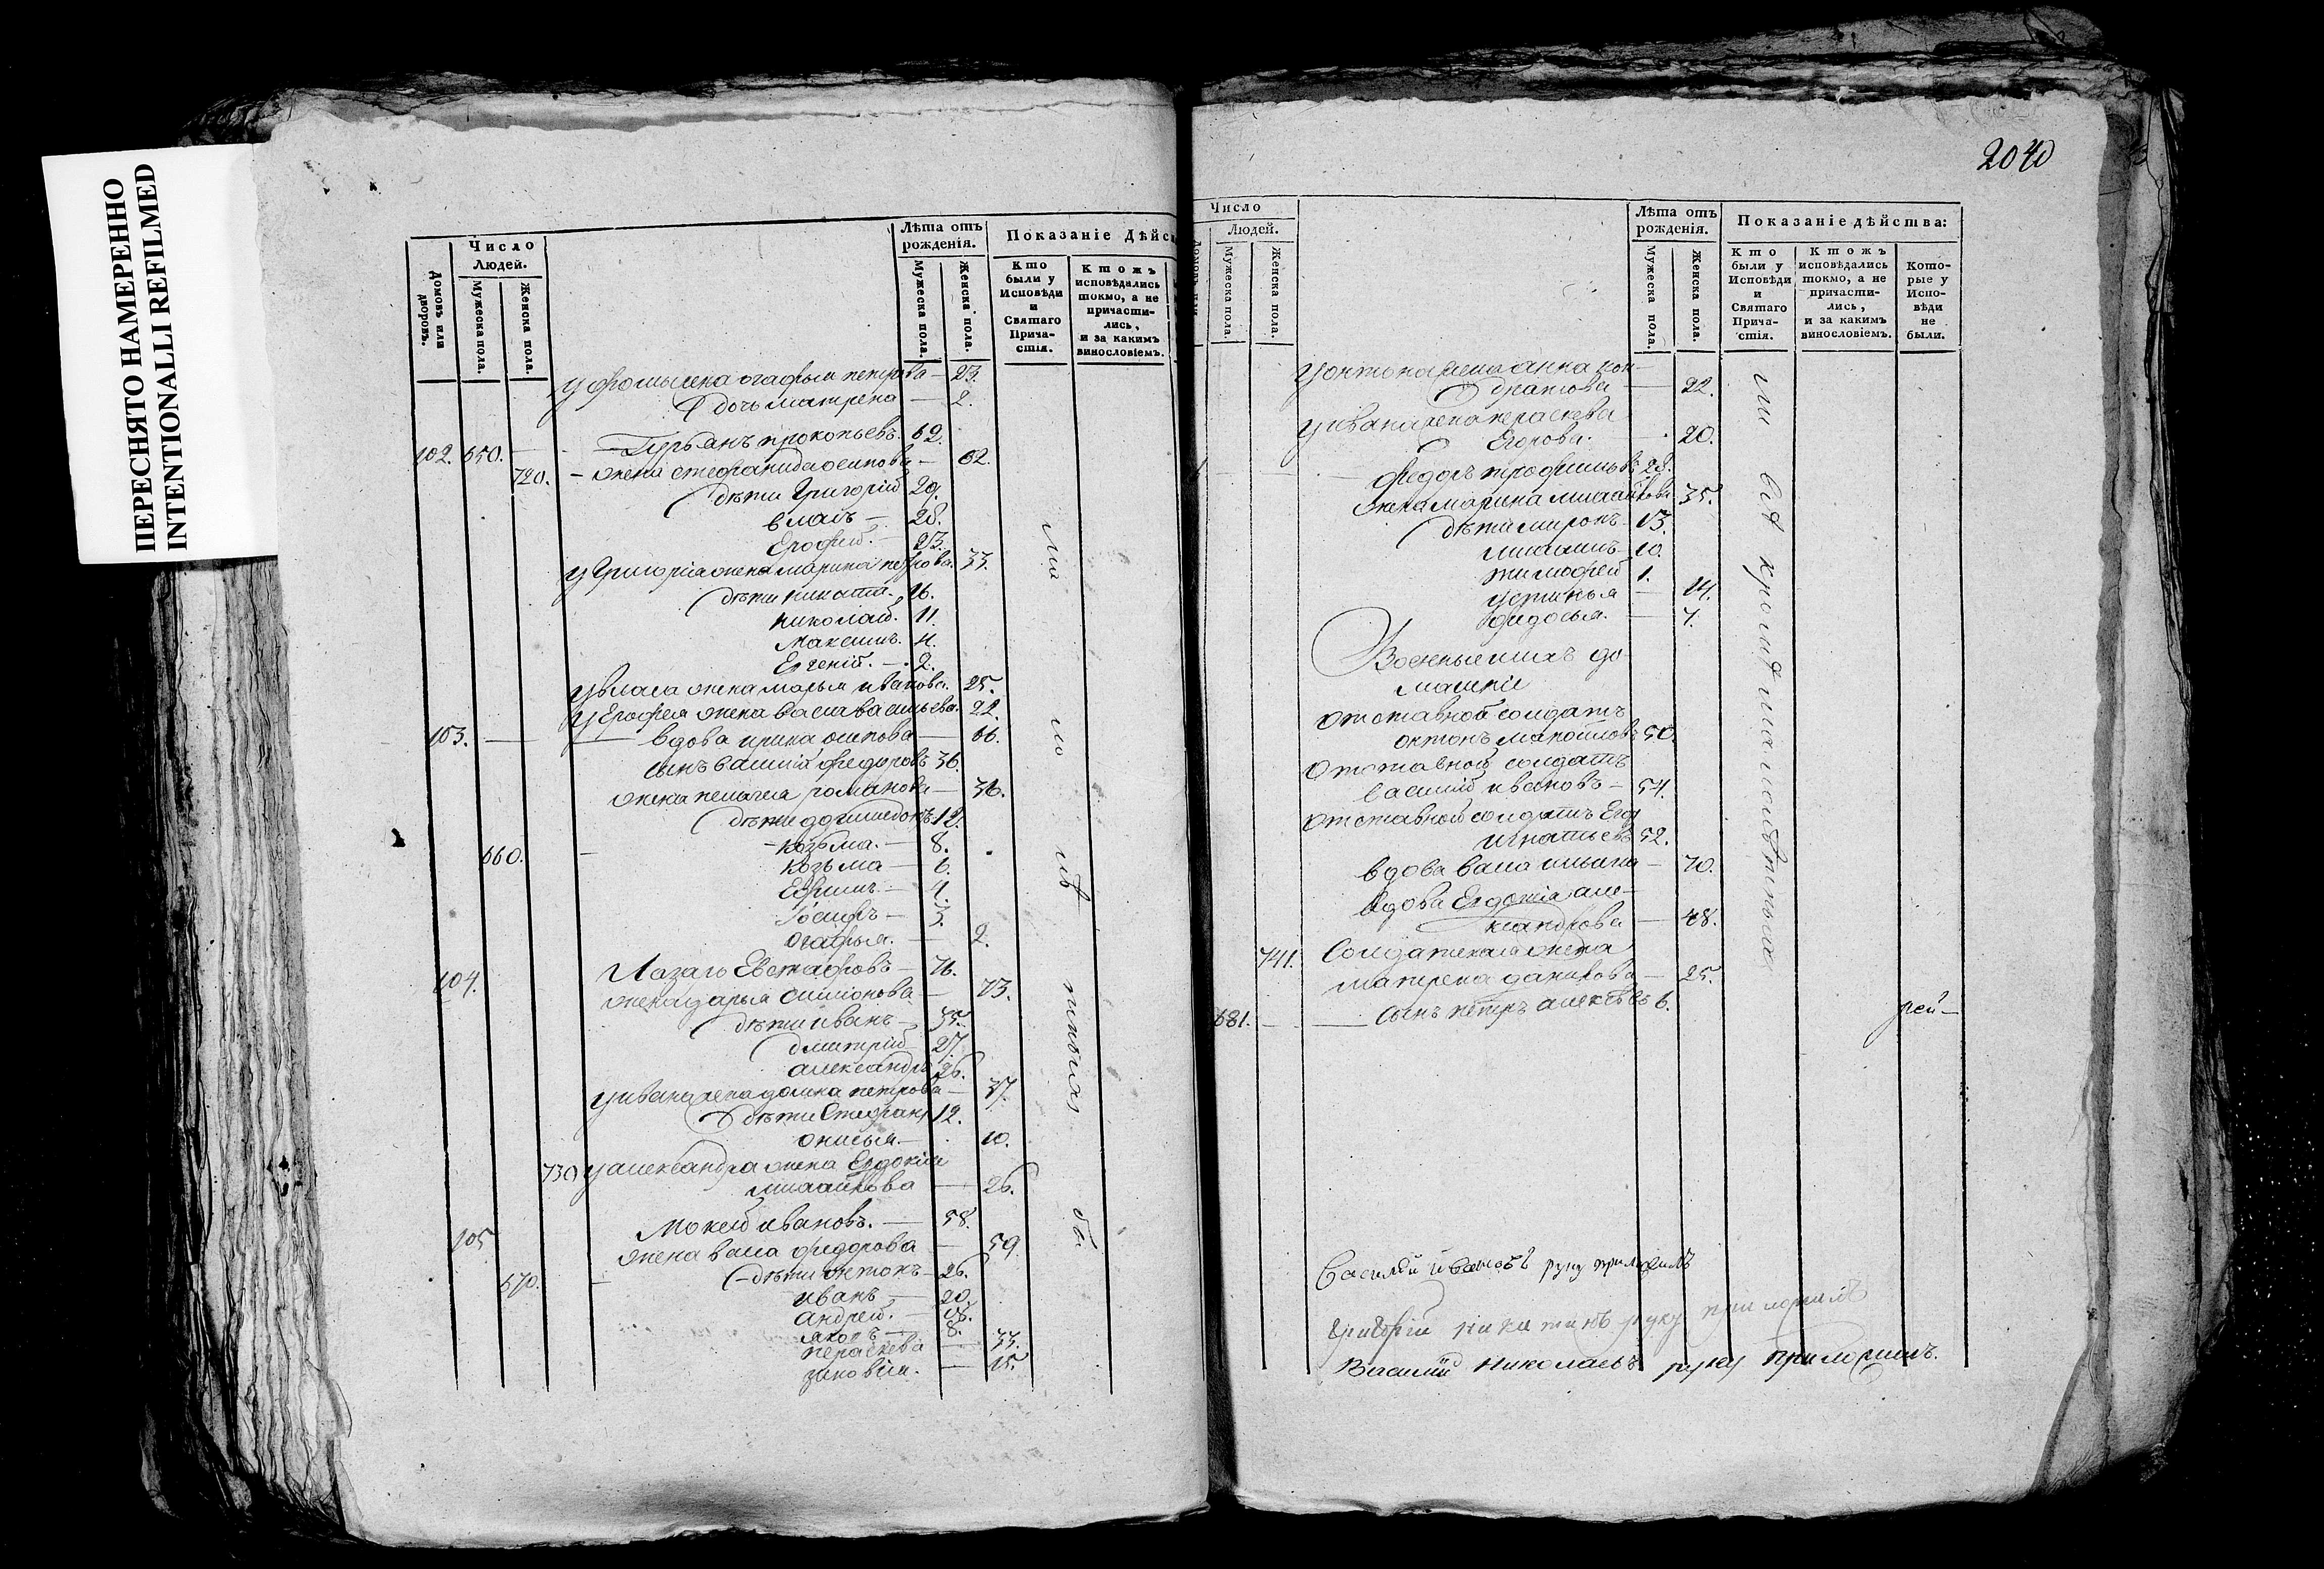 ПЕРЕСНЯТО НАМЕРЕННО
INTENTIONALLI REFILMED
Домовъ или дворовъ.
Число Людей.
Мужеска пола.
Женска пола.
Лѣта отъ рожденія.
Мужеска пола.
Женска пола.
Показаніе Дѣйс
Кто были у Исповѣди и Святаго Прича-стія.
Ктожъ исповѣдались токмо, а не причасти-лись, и за какимъ винословіемъ.
жена огафья петрова — 23.
дочь матрена — 2.
102. 650. Гурьанъ прокопьевъ. 62.
720. жена стефанида осипова — 62.
дѣти Григорій 29.
власъ — 28.
Ерофей. — 23.
у Григоріа жена марина петрова. 33.
дѣти никита. 16.
николай. 11.
максимъ. 4.
Евгеній. — 2.
у власа жена марья иванова. 25.
у Ерофея жена васа васильева. 22.
103. — вдова ирина осипова — 66.
сынъ василій федоровъ 36.
жена пелагея романова — 36.
дѣти 12.
козьма. — 8.
660. козьма — 6.
Ефимъ — 4.
Іосифъ — 3.
огафья. — 2.
104. Лазарь Евстафовъ — 76.
жена дарья симионова — 73.
дѣти иванъ — 35.
дмитрій 27.
александръ 26.
у ивана жена домна петрова — 37.
дѣти Стефанъ 12.
онисья. — 10.
730 у александра жена Евдокіа
михайлова — 26.
105 Мокей ивановъ. — 58.
жена васа федорова — 59.
670. дѣти онтонъ — 26.
иванъ — 20.
андрей. — 18.
яковъ — 8.
пераскева — 33.
зиновіа. — 15.
ма
ло
лѣ
тныхъ
об.
2040
Число
Людей.
Мужеска пола.
Женска пола.
Лѣта отъ рожденія.
Мужеска пола.
Женска пола.
Показаніе дѣйства:
Кто были у Исповѣди и Святаго Прича-стія.
Ктожъ исповѣдались токмо, а не причасти-лись, и за какимъ винословіемъ.
Кото-рые у Испо-вѣди не были.
у онтона жена анна кон-
дратова — 22.
у ивана жена пераскева
Егорова. — 20.
федоръ трофимовъ 28.
жена марина михайлова 35.
дѣти миронъ 13.
михаилъ 10.
тимофей 1.
устинья — 14.
федосья. — 7.
Военные и ихъ до-
машніе
отставной солдатъ
онтонъ мануиловъ 50.
Отставной солдатъ
василій ивановъ — 54.
отставной солдатъ Егоръ
игнатьевъ 52.
вдова васа ильина — 70.
вдова Евдокіа але-
ксандрова — 48.
741. Солдатская жена
матрена данилова — 25.
681. — сынъ петръ алексѣевъ 6.
всѣ кромѣ малолѣтныхъ
Василій ивановъ руку приложилъ
Григорій никитинъ руку приложилъ
Василій Николаевъ руку приложилъ.